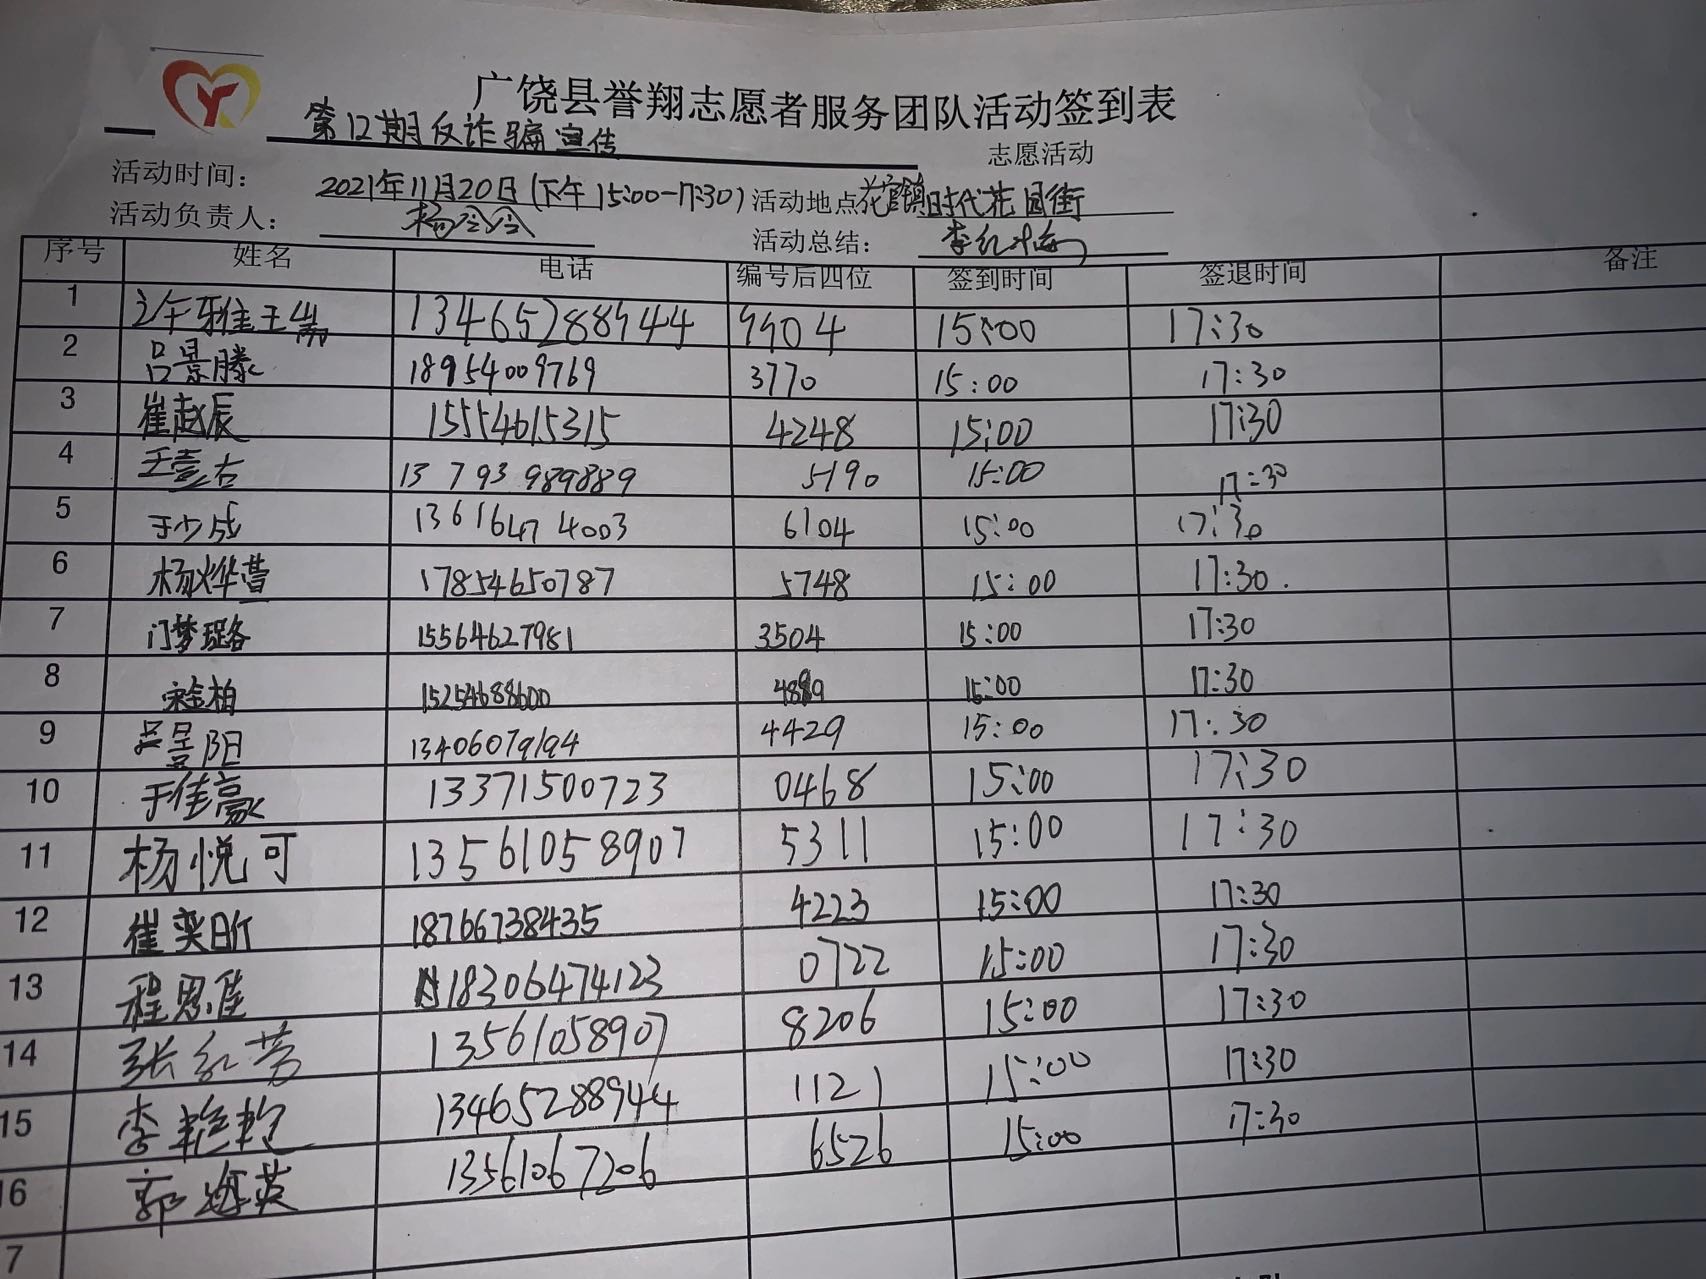 广饶县誉翔志愿者服务团队活动签到表
第12期反诈骗宣传 志愿活动
活动时间: 2021年11月20日(下午15:00-17:30) 活动地点 花官镇时代花园街
活动负责人: 杨 活动总结: 李红梅
序号 姓名 电话 编号后四位 签到时间 签退时间 备注
1 13465288944 9904 15:00 17:30
2 吕景滕 18954009769 3770 15:00 17:30
3 崔赵辰 15554615315 4248 15:00 17:30
4 王壹右 13793989889 5190 15:00 17:30
5 于少成 13616474003 6104 15:00 17:30
6 杨烨萱 17854650787 5748 15:00 17:30.
7 门梦璐 15564627981 3504 15:00 17:30
8 宋金柏 15254688600 15:00 17:30
9 吕昱阳 13406079194 4429 15:00 17:30
10 于佳豪 13371500723 0468 15:00 17:30
11 杨悦可 13561058907 5311 15:00 17:30
12 崔奕昕 18766738435 4223 15:00 17:30
13 程思佳 18306474123 0722 15:00 17:30
14 张红芳 13561058907 8206 15:00 17:30
15 李艳艳 13465288944 1121 15:00 17:30
16 郭海英 13561067206 6526 15:00 17:30
7